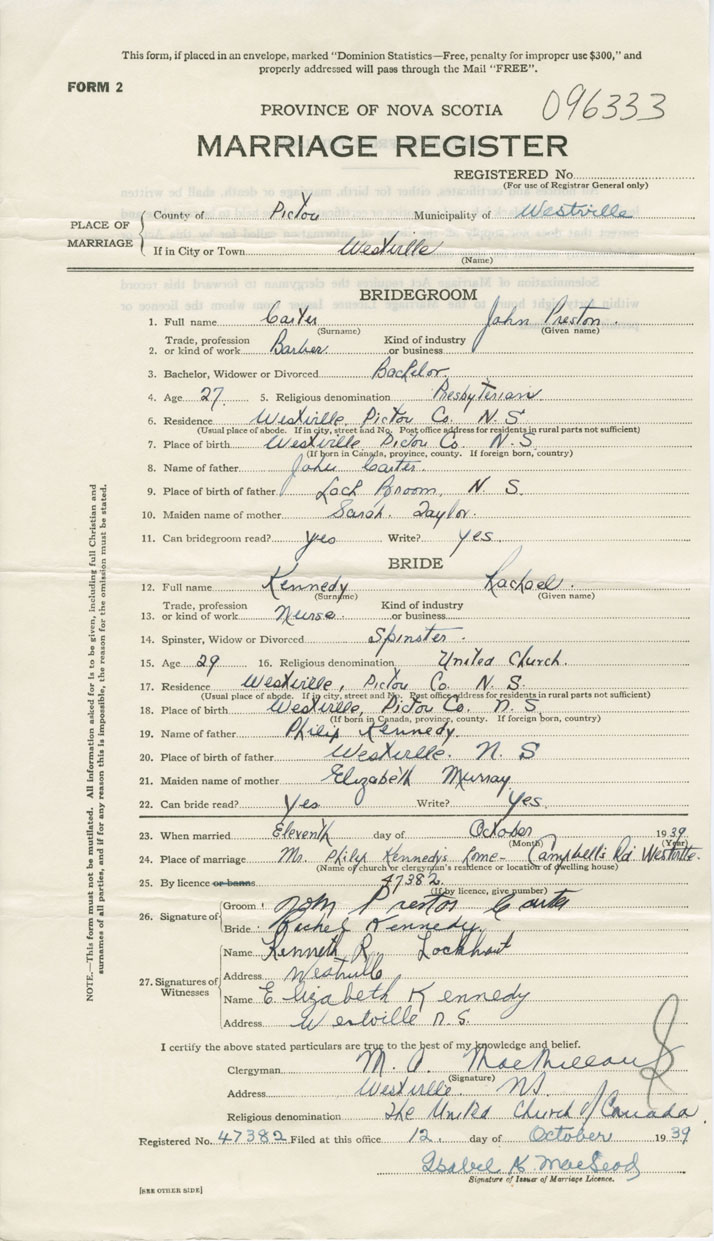 This form, if placed in an envelope, marked "Dominion Statistics—Free, penalty for improper use $300," and
properly addressed will pass through the Mail "FREE".
FORM 2
096333
PROVINCE OF NOVA SCOTIA
MARRIAGE REGISTER
REGISTERED No.
(For use of Registrar General only)
PLACE OF MARRIAGE
County of Pictou Municipality of Westville
If in City or Town Westville
(Name)
BRIDEGROOM
1. Full name Carter John Preston.
(Surname) (Given name)
2. Trade, profession or kind of work Barber Kind of industry or business
3. Bachelor, Widower or Divorced Bachelor.
4. Age 27. 5. Religious denomination Presbyterian
6. Residence Westville, Pictou Co. N. S
(Usual place of abode. If in city, street and No. Post office address for residents in rural parts not sufficient)
7. Place of birth Westville, Pictou Co. N. S.
(If born in Canada, province, county. If foreign born, country)
8. Name of father John Carter.
9. Place of birth of father Loch Broom, N. S.
10. Maiden name of mother Sarah Taylor.
11. Can bridegroom read? yes Write? yes.
BRIDE
12. Full name Kennedy Rachael.
(Surname) (Given name)
13. Trade, profession or kind of work Nurse. Kind of industry or business
14. Spinster, Widow or Divorced Spinster.
15. Age 29 16. Religious denomination United Church.
17. Residence Westville, Pictou Co. N. S.
(Usual place of abode. If in city, street and No. Post office address for residents in rural parts not sufficient)
18. Place of birth Westville, Pictou Co. N. S
(If born in Canada, province, county. If foreign born, country)
19. Name of father Philip Kennedy.
20. Place of birth of father Westville. N. S
21. Maiden name of mother Elizabeth Murray
22. Can bride read? Yes Write? Yes.
23. When married Eleventh day of October 1939
(Month) (Year)
24. Place of marriage Mr. Philip Kennedy's home - Campbell's Rd. Westville.
(Name of church or clergyman's residence or location of dwelling house)
25. By licence or banns 47382.
(If by licence, give number)
26. Signature of
Groom John Preston Carter
Bride Rachel Kennedy
27. Signatures of Witnesses
Name Kenneth R. Lockhart
Address Westville
Name Elizabeth Kennedy
Address Westville N.S.
I certify the above stated particulars are true to the best of my knowledge and belief.
Clergyman M. A. MacMillan
(Signature)
Address Westville NS.
Religious denomination The United Church of Canada.
Registered No. 47382 Filed at this office 12. day of October 1939
Isabel K. MacLeod
Signature of Issuer of Marriage Licence.
[SEE OTHER SIDE]
NOTE.—This form must not be mutilated. All information asked for is to be given, including full Christian and
surnames of all parties, and if for any reason this is impossible, the reason for the omission must be stated.